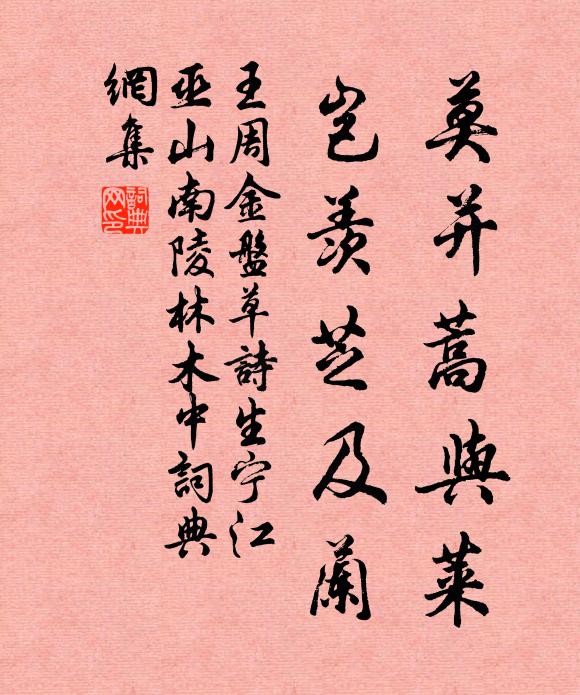 莫并蒿與萊
豈羨芝及蘭
王周金盤草詩生宁江
巫山南陵林木中詞典
網集
詞典網印